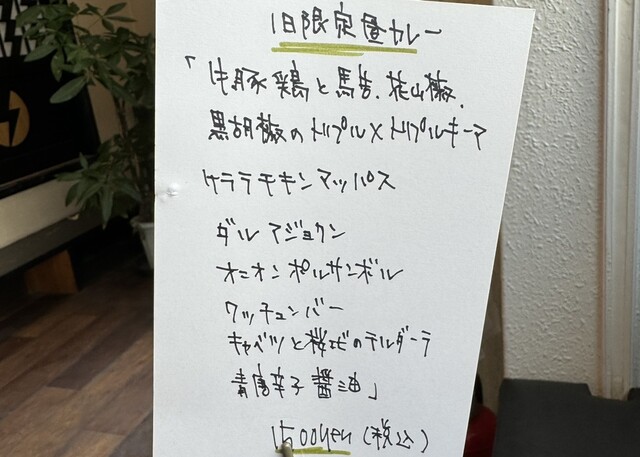 1日限定昼カレー
「牛豚鶏と馬告、花山椒、
黒胡椒のトリプル×トリプルキーマ
ケララチキンマッパス
ダルアジョワン
オニオンポルサンボル
ワッチュンバー
キャベツと桜エビのテルダーラ
青唐辛子醤油」
1500yen (税込)